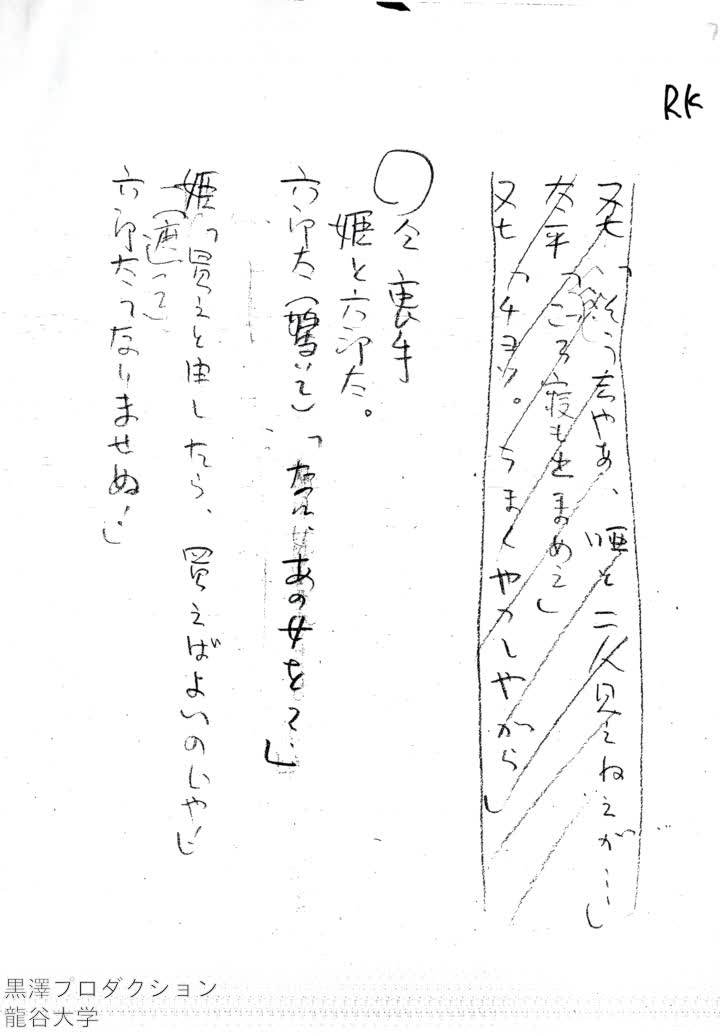 RK
又七「そう言やあ、唖と二人見えねえが…」
太平「ころ寝もまめえ」
又七「チョッ。うまくやりしやがら」
〇仝 裏手
姫と六郎太。
六郎太(驚いて)「なに、あの女をて」
姫「買えと申したら、買えばよいのじゃ!」
六郎太「(遮って)なりませぬ!」
黒澤プロダクション
龍谷大学